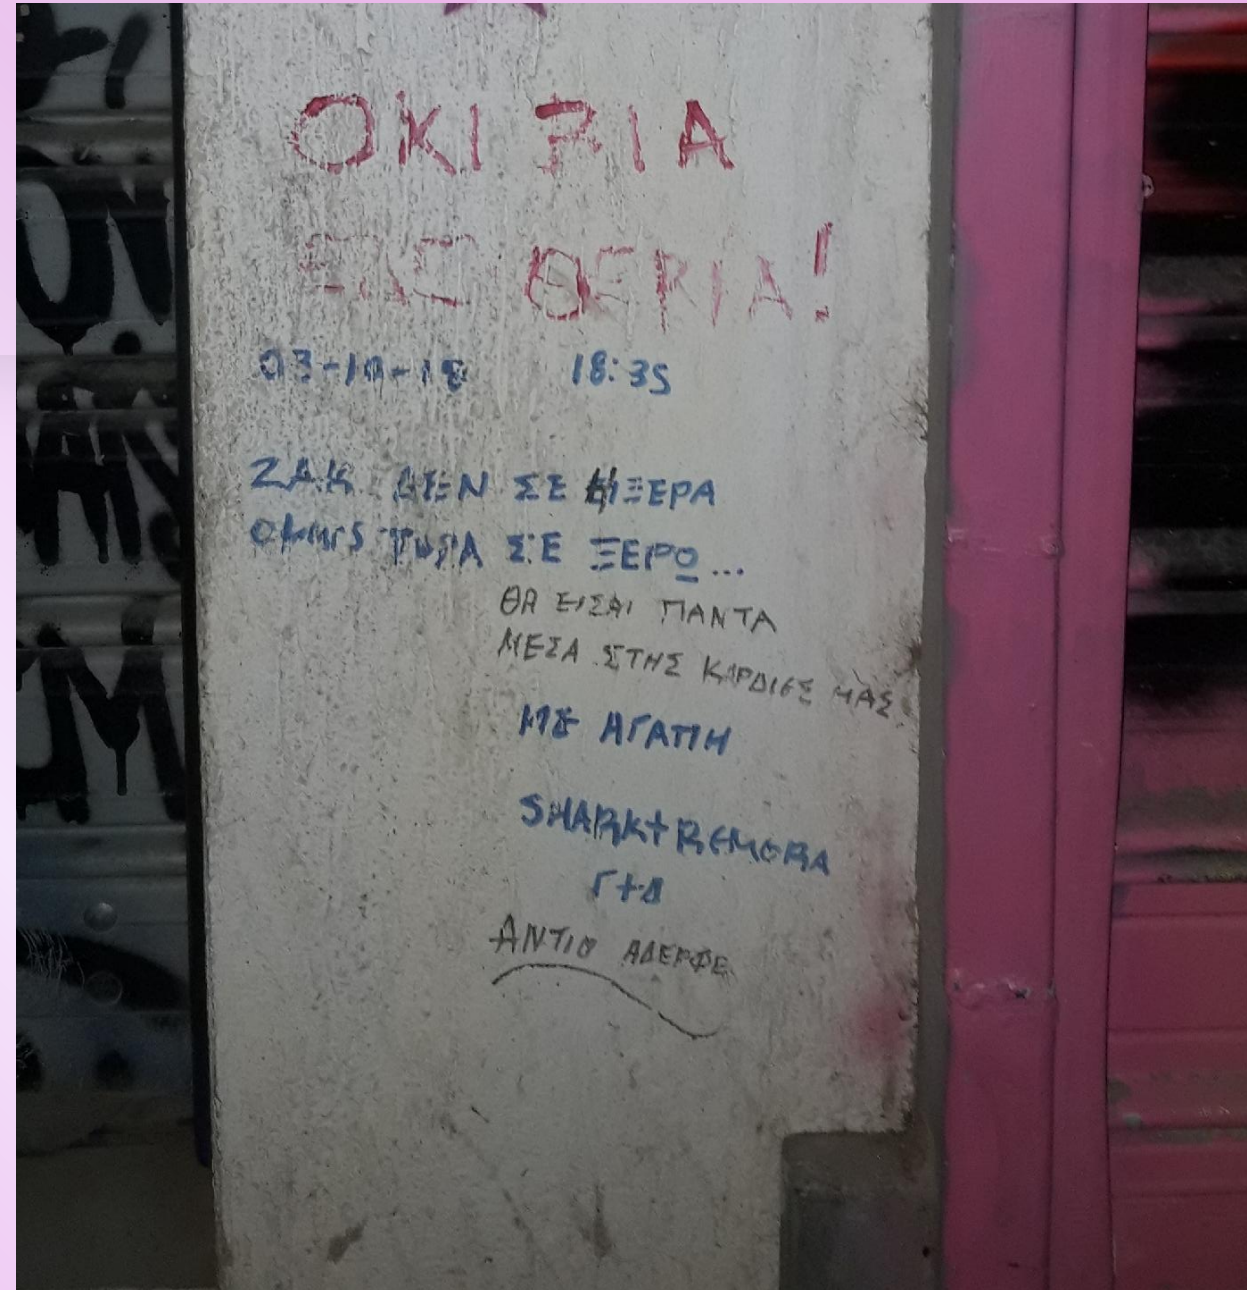 ΟΚΙ ΒΙΑ
ΣΚΕ ΘΕΡΙΑ!
03-10-18 18:35
ΖΑΚ ΔΕΝ ΣΕ ΗΞΕΡΑ
ΟΜΩS ΤΩΡΑ ΣΕ ΞΕΡΩ...
ΘΑ ΕΙΣΑΙ ΠΑΝΤΑ
ΜΕΣΑ ΣΤΗΣ ΚΑΡΔΙΕΣ ΜΑΣ.
ΜΕ ΑΓΑΠΗ
SHARK+REMORA
Γ+Δ
ΑΝΤΙΟ ΑΔΕΡΦΕ